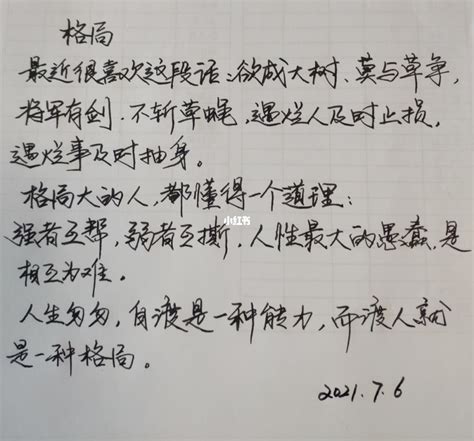 格局
最近很喜欢这段话:欲成大树、莫与草争,
将军有剑.不斩草蝇,遇烂人及时止损,
遇烂事及时抽身。
格局大的人,都懂得一个道理:
小红书
强者互帮,弱者互撕,人性最大的愚蠢,是
相互为难。
人生匆匆,自渡是一种能力,而渡人就
是一种格局。
2021.7.6